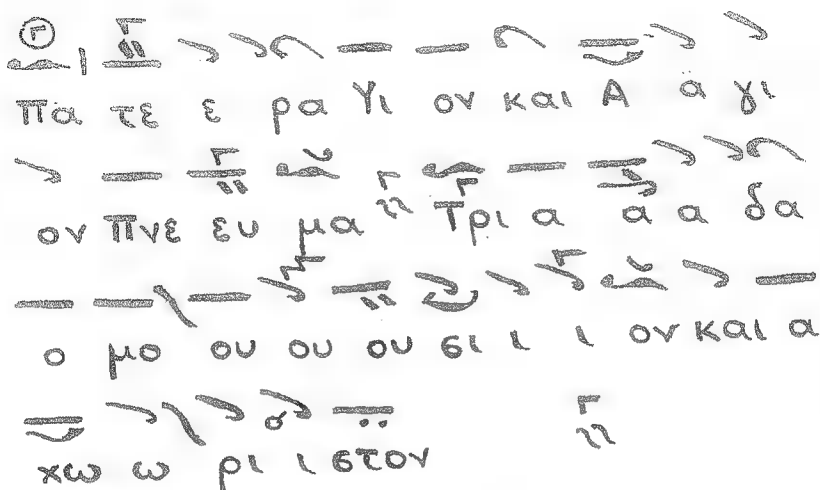 Πα τε ε ρα Υι ον και Α α γι
ον Πνε ευ μα Τρι α α α δα
ο μο ου ου ου σι ι ι ον και α
χω ω ρι ι στον